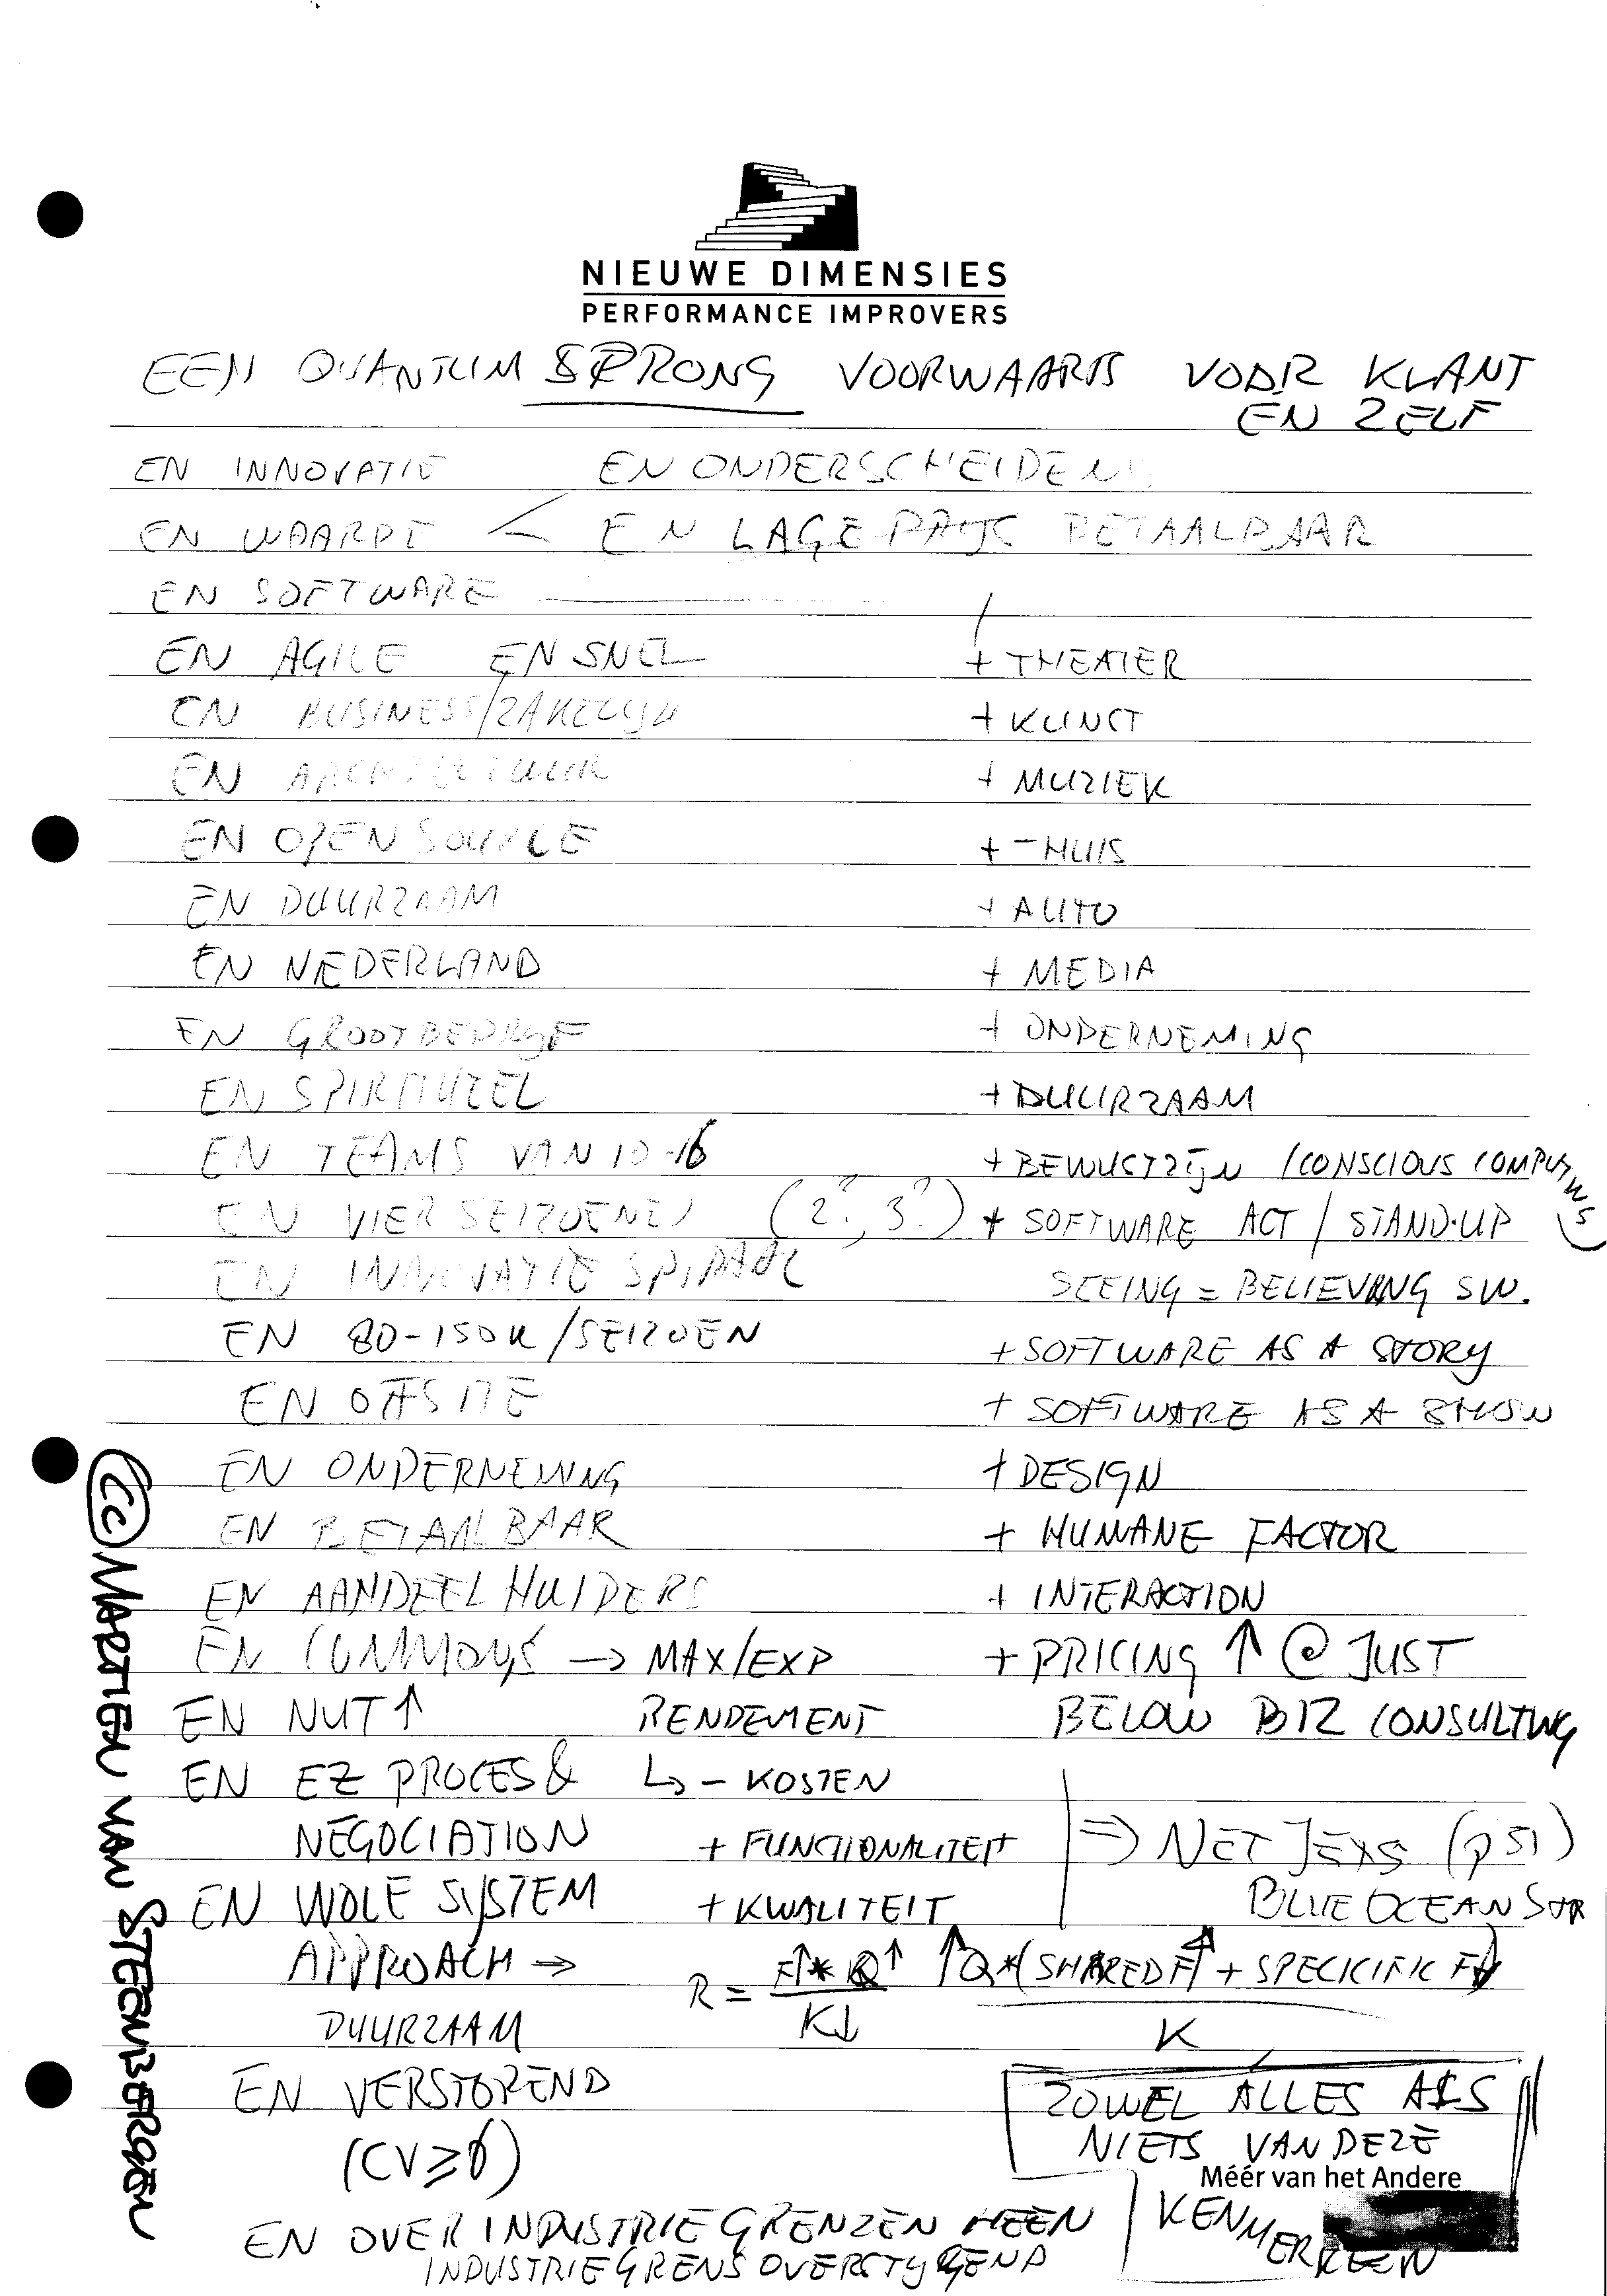 NIEUWE DIMENSIES
PERFORMANCE IMPROVERS
EEN QUANTUM SPRONG VOORWAARTS VOOR KLANT
EN ZELF
EN INNOVATIE EN ONDERSCHEIDEND
EN WAARDE < EN LAGE PRIJS BETAALBAAR
EN SOFTWARE
EN AGILE EN SNEL + THEATER
EN BUSINESS/ZAKELIJK + KUNST
EN ARCHITECTUUR + MUZIEK
EN OPEN SOURCE + -HUIS
EN DUURZAAM + AUTO
EN NEDERLAND + MEDIA
EN GROOTBEDRIJF + ONDERNEMING
EN SPIRITUEEL + DUURZAAM
EN TEAMS VAN 10-16 + BEWUSTZIJN (CONSCIOUS COMPUTING)
EN VIER SEIZOENEN (2?, 3?) + SOFTWARE ACT / STAND-UP
EN INNOVATIE SPIRAAL SEEING = BELIEVING SW.
EN 80-150K/SEIZOEN + SOFTWARE AS A STORY
EN OFFSITE + SOFTWARE AS A SHOW
EN ONDERNEMING + DESIGN
EN BETAALBAAR + HUMANE FACTOR
EN AANDEELHOUDERS + INTERACTION
EN COMMONS → MAX/EXP + PRICING ↑ @ JUST
EN NUT ↑ RENDEMENT BELOW BIZ CONSULTING
EN EZ PROCES & ↳ - KOSTEN
NEGOCIATION + FUNCTIONALITEIT ⇒ NET JETS (p 51)
EN WOLE SYSTEM + KWALITEIT BLUE OCEAN STR
APPROACH → R = F↑ * Q↑ ↑Q*(SHARED F↑ + SPECICIFIC F↓)
DUURZAAM K↓ K
EN VERSTOREND ZOWEL ALLES ALS
(CV≥6) NIETS VAN DEZE
Méér van het Andere
KENMERKEN
EN OVER INDUSTRIE GRENZEN HEEN
INDUSTRIEGRENS OVERSTIJGEND
(CC) MARTIEN VAN STEENBERGEN